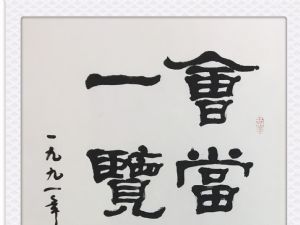 會當
一覽
一九九一年